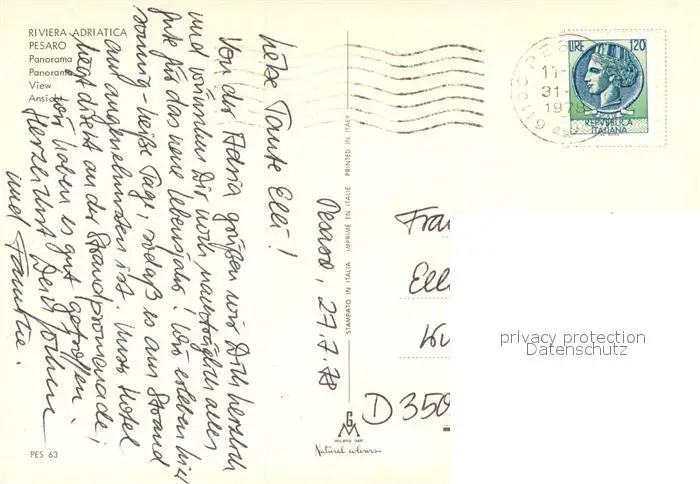 RIVIERA ADRIATICA
PESARO
Panorama
Panorama
View
Ansicht
Pesaro, 27.7.78
Liebe Tante Elli!
Von der Adria grüßen wir Dich herzlich
und wünschen Dir noch nachträglich alles
Gute für das neue Lebensjahr! Wir erleben hier
sonnig-heiße Tage, sodaß es am Strand
am angenehmsten ist. Unser Hotel
liegt direkt an der Strandpromenade;
wir haben es gut getroffen.
Herzlichst Dein
und Familie.
PES 63
STAMPATO IN ITALIA IMPRIMÉ EN ITALIE PRINTED IN ITALY
GM
MILANO DEP.
Natural colours
61100 PES
11-
31-
1978
LIRE 120
REPVBBLICA
ITALIANA
Frau
Elli
D 350
privacy protection
Datenschutz